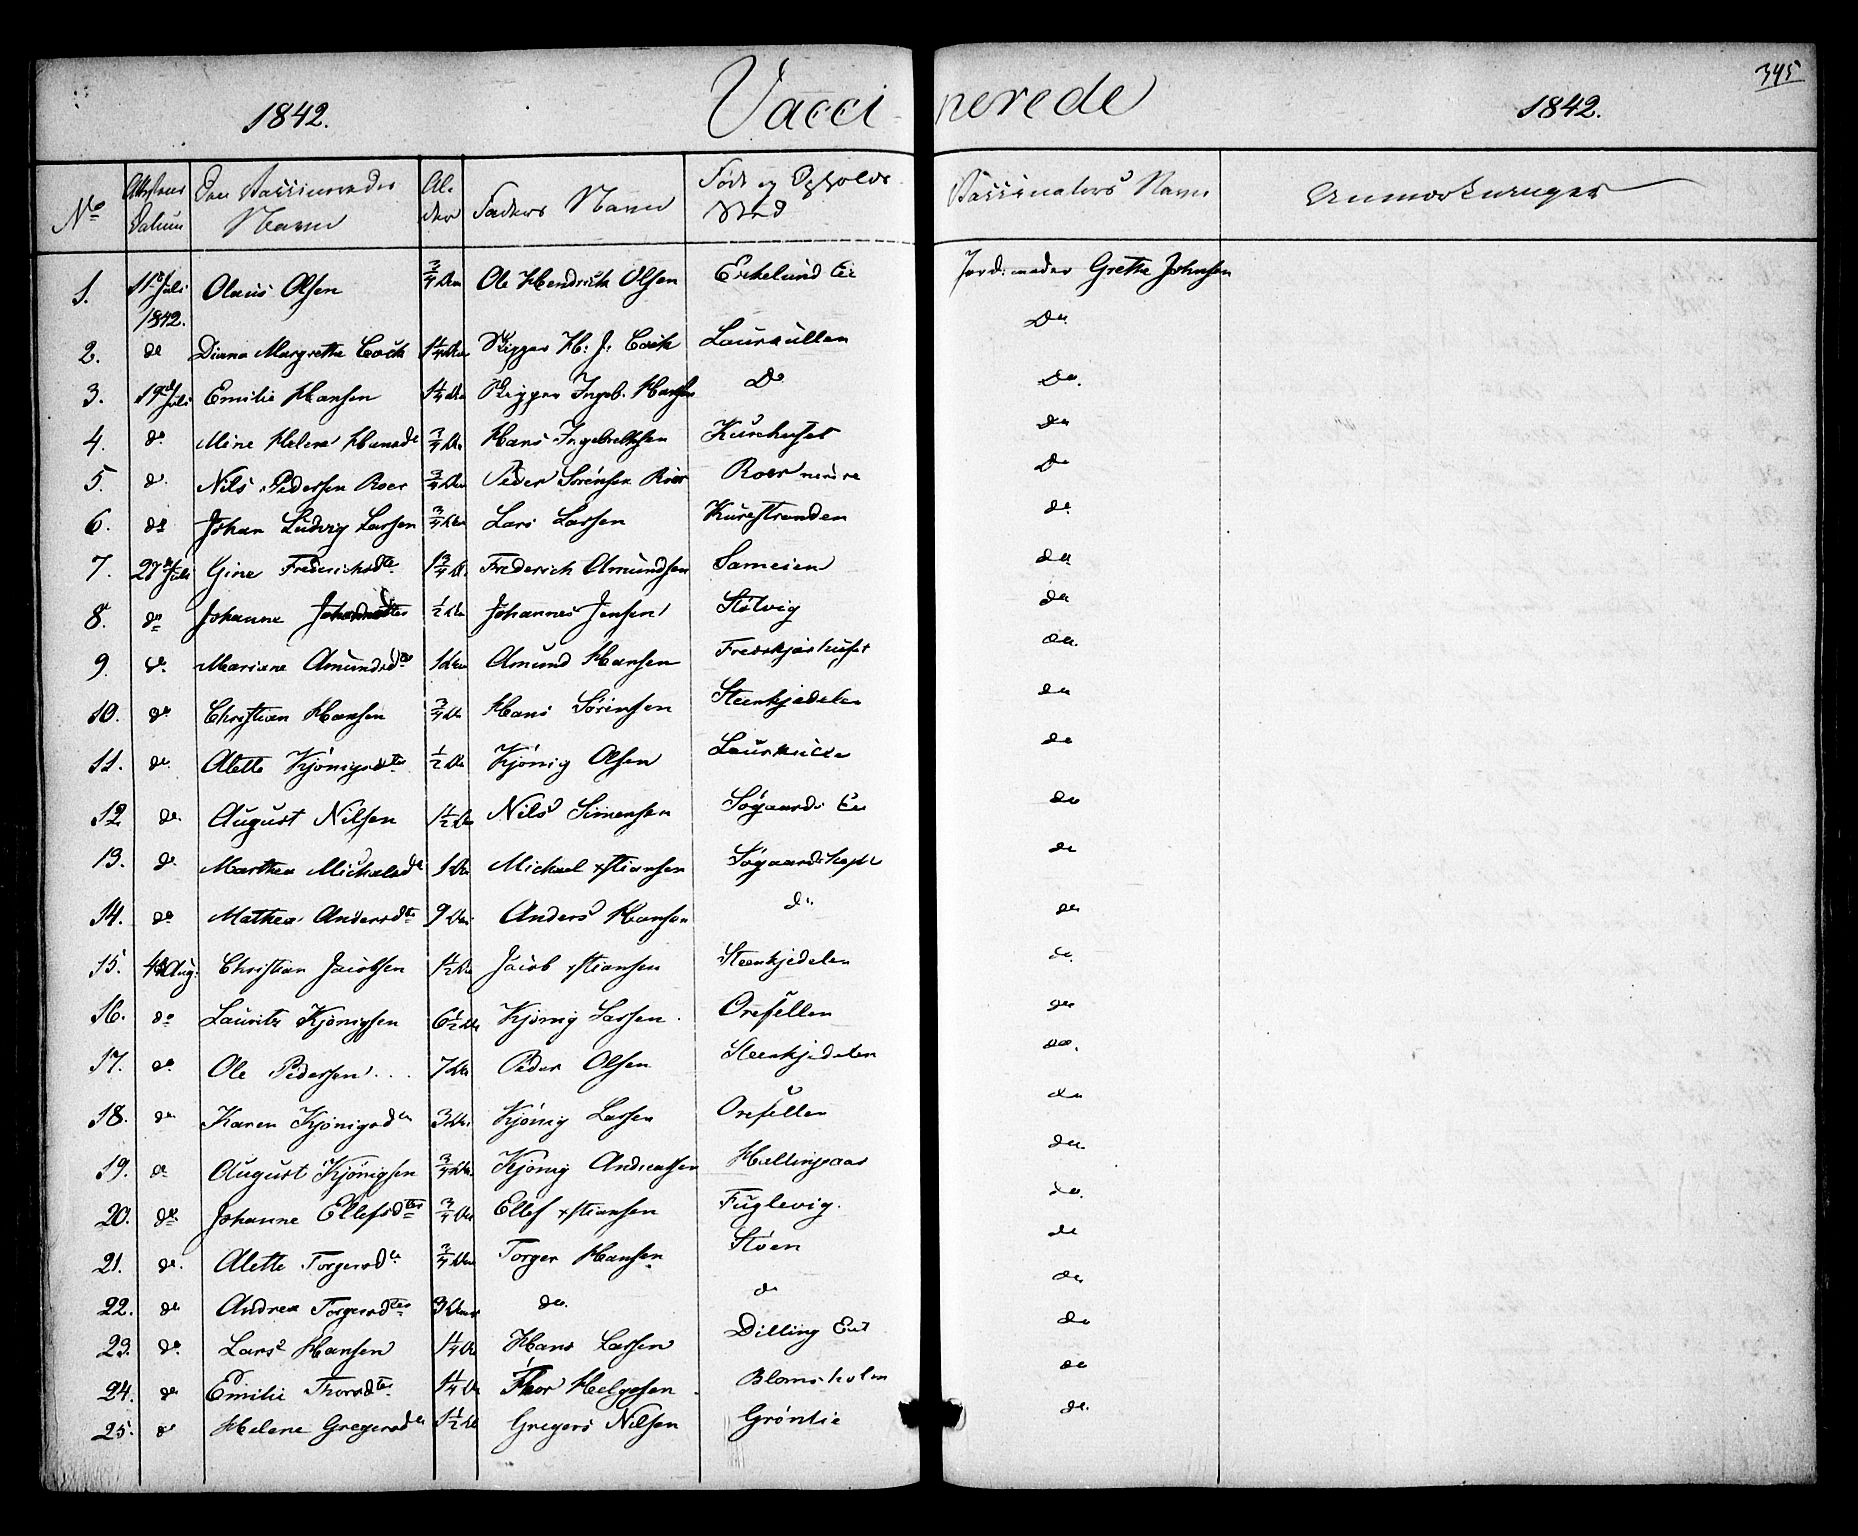 345
1842. Vaccinerede 1842.
No Attestens Datum Den Vaccineredes Navn Alder Faders Navn Føde og Opholds Sted Vaccinators Navn Anmærkninger
1. 11te Juli 1842. Olaus Olsen 3/4 Aar Ole Hendrich Olsen Eskelund Eie Jordemoder Grethe Johnsen
2. do Diana Margrethe Cock 1 1/4 Aar Skipper H: J: Cock Laurkullen Do
3. 19de Juli Emilie Hansen 1 1/4 Aar Skipper Ingeb. Hansen Do Do.
4. do Mine Helene Hansdr 3/4 Aar Hans Ingebrethsen Kurehuset do
5. do Nils Pedersen Roer 3/4 Aar Peder Sørensen Roer Roer nedre Do
6. do Johan Ludvig Larsen 3/4 Aar Lars Larsen Kurestranden do
7. 28de Juli Gine Frederichsdtr 1 3/4 A. Frederich Amundsen Sameien do
8. do Johanne 1/2 Aar Johannes Jensen Støtvig do
9. do Mariane Amundsdtr 1 Aar Amund Hansen do.
10. do Christian Hansen 3/4 Aar Hans Sørensen Steenkjedelen do
11. do Alette Kjønigsdtr 1/2 Aar Kjønig Olsen do
12 do. August Nilsen 1 1/2 Aar Nils Simensen Søgaards Eie do
13. do Marthea Michelsdr 1 Aar Michael Xstiansen do
14. do Mathea Andersdtr 9 Aar Anders Hansen do do
15. 4de Aug: Christian Jacobsen 1 1/2 Aar Jacob Xstiansen Steenkjedelen do
16. do Lauritz Kjønigsen 6 1/2 Aar Kjønig Larsen. Orefellen do
17. do Ole Pedersen 7 Aar Peder Olsen Steenkjedelen do.
18. do Karen Kjønigsdtr 3 Aar Kjønig Larsen Orefellen do
19. do August Kjønigsen 3/4 Aar Kjønig Andreassen Hellingaas do
20. do Johanne Ellefsdtr 3/4 Aar Ellef Xstiansen Fuglevig. do
21. do. Alette Torgersdr 3/4 Aar Torger Hansen Støen do
22. do Andrea Torgersdtr 3 Aar do. do do
23. do Lars Hansen 1 1/4 Aar Hans Larsen Dilling Eie do
24. do Emilie Thorsdtr 1 1/4 Aar Thor Helgesen Blomsholm do
25. do Helene Gregersdr 1 1/2 Aar Gregers Nilsen Grønlie do.